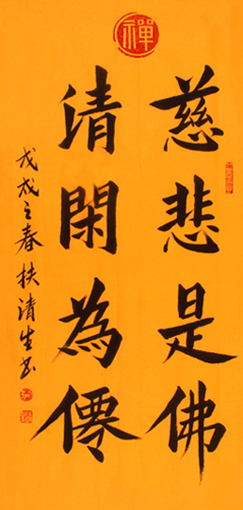 禪
慈悲是佛
清閑為僊
戊戌之春扶清生书